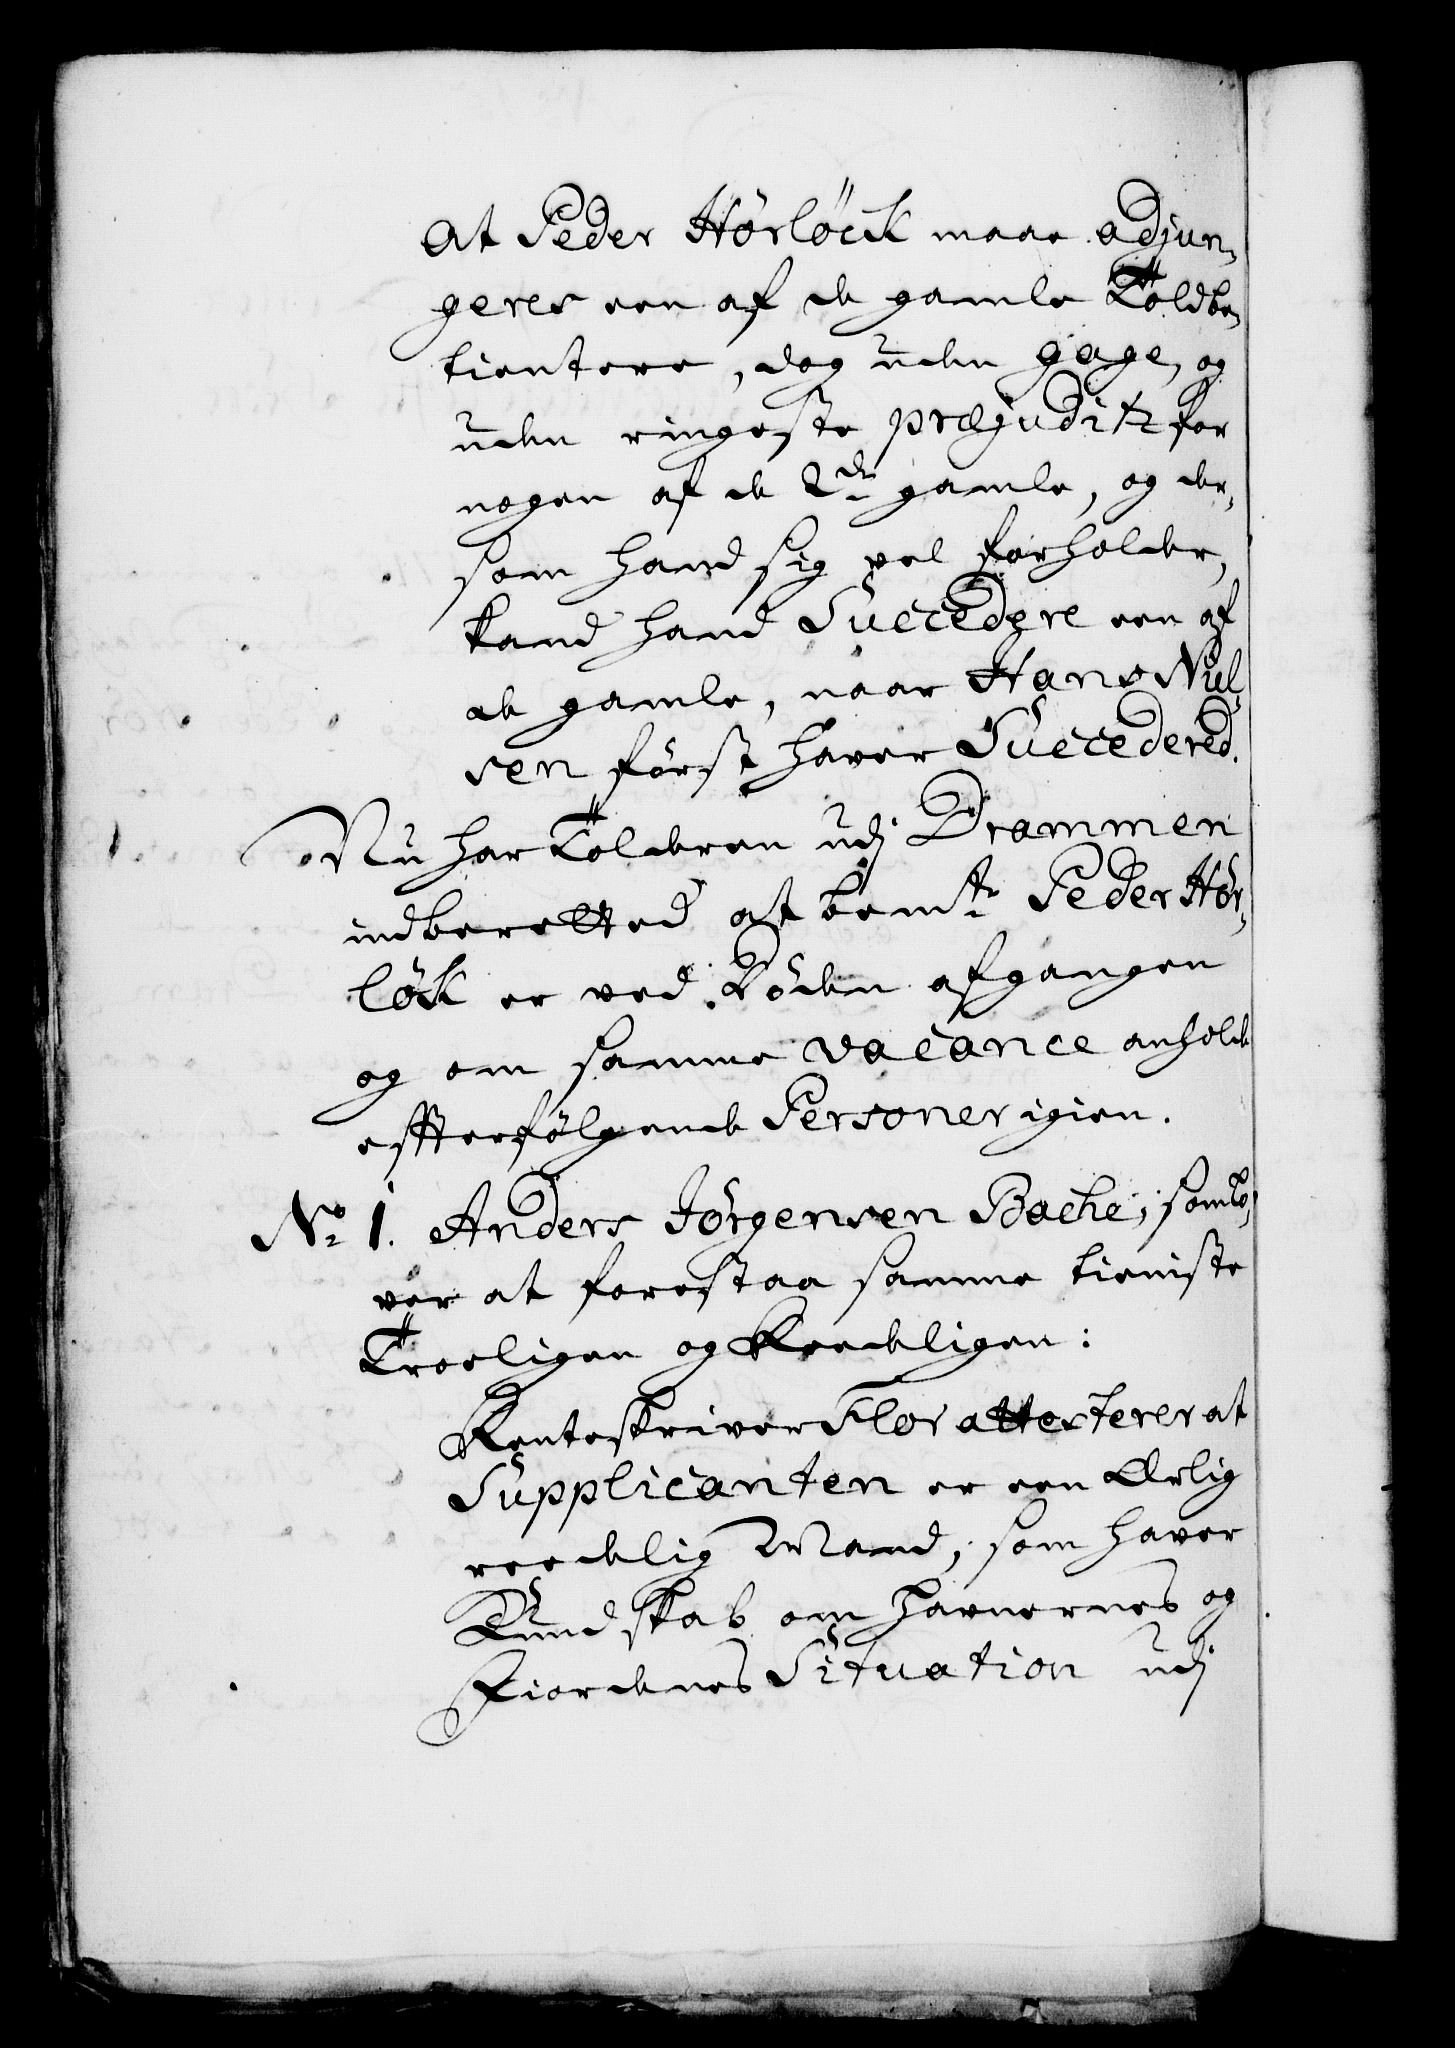 At Peder Hörlöck maae adjun-
geres een af de gamle Toldbe-
tientere, dog uden gage, og
uden ringeste præjuditz for
nogen af de 2de gamle, og der-
som hand sig vel forholder,
kand hand Succedere een af
de gamle, naar Hans Niel-
sen först haver Succedered.
Nu har Tolderen udj Drammen
indberetted at bemte Peder Hör-
lök er ved Döden afgangen
og om samme vacance anholde
effterfölgende Personer igien.
No 1. Anders Jörgensen Bache, som lo-
ver at forestaa samme tieniste
Troeligen og Reedeligen:
Renteskriver Flor attesterer at
Supplicanten er een Ærlig
reedelig Mand, som haver
Kundskab om Havnernes og
Fiordenes Situation udj